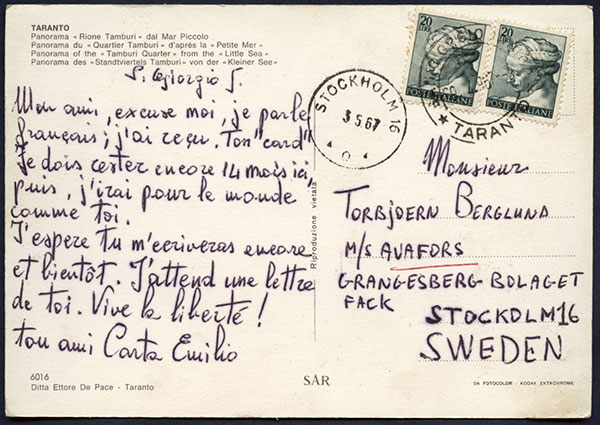 TARANTO
Panorama «Rione Tamburi» dal Mar Piccolo
Panorama du «Quartier Tamburi» d'aprés la «Petite Mer»
Panorama of the «Tamburi Quarter» from the «Little Sea»
Panorama des «Standviertels Tamburi» von der «Kleiner See»
S. Giorgio J.
Mon ami, excuse moi, je parle
français; j'ai reçu ton "card"
Je dois rester encore 14 mois ici,
puis, j'irai pour le monde
comme toi.
J'espere tu m'ecriveras encore
et bientôt. J'attend une lettre
de toi. Vive la liberté!
ton ami Carta Emilio
6016
Ditta Ettore De Pace - Taranto
Riproduzione vietata
SAR
20
LIRE
POSTE ITALIANE
20
LIRE
POSTE ITALIANE
TARANTO
STOCKHOLM 16
3.5.67
Monsieur
TORBJOERN BERGLUND
M/S AVAFORS
GRANGESBERG-BOLAGET
FACK
STOCKOLM16
SWEDEN
DA FOTOCOLOR - KODAK EKTACHROME